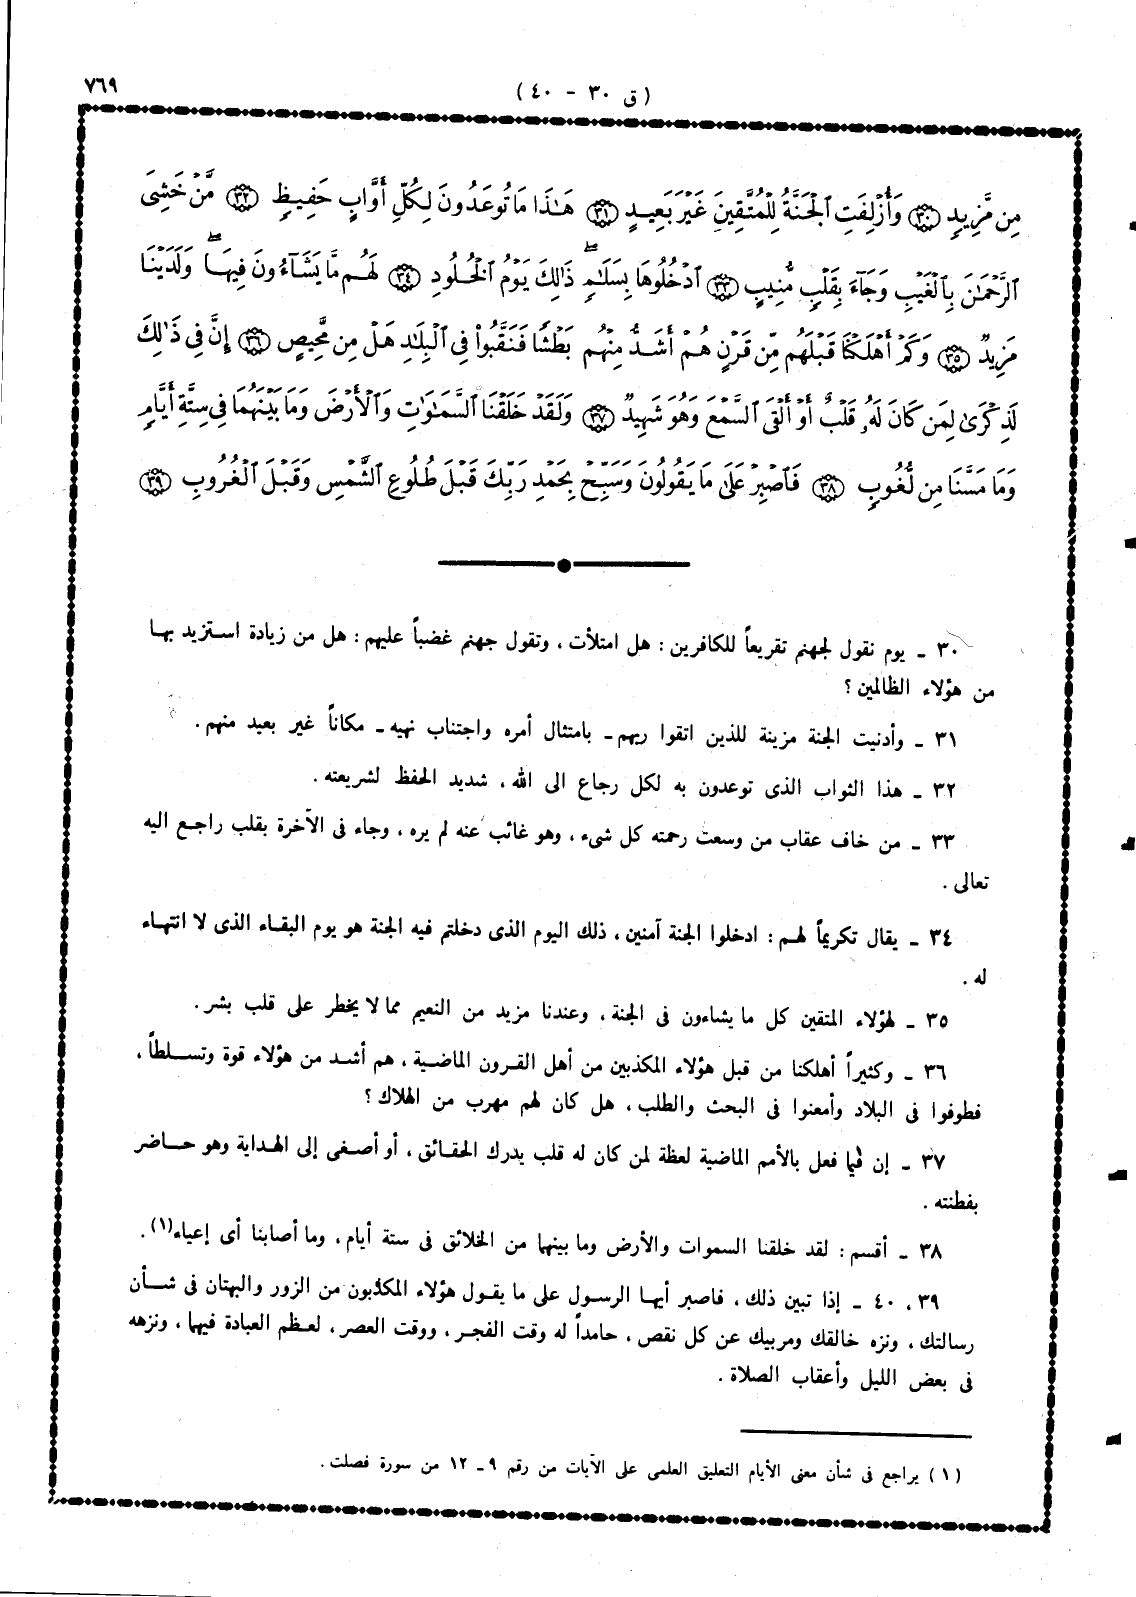 ٧٦٩
( ق ٣٠ – ٤٠ )
مِن مَّزِيدٍ ٣٠ وَأُزْلِفَتِ ٱلْجَنَّةُ لِلْمُتَّقِينَ غَيْرَ بَعِيدٍ ٣١ هَٰذَا مَا تُوعَدُونَ لِكُلِّ أَوَّابٍ حَفِيظٍ ٣٢ مَّنْ خَشِىَ
ٱلرَّحْمَٰنَ بِٱلْغَيْبِ وَجَآءَ بِقَلْبٍ مُّنِيبٍ ٣٣ ٱدْخُلُوهَا بِسَلَٰمٍ ۖ ذَٰلِكَ يَوْمُ ٱلْخُلُودِ ٣٤ لَهُم مَّا يَشَآءُونَ فِيهَا ۖ وَلَدَيْنَا
مَزِيدٌ ٣٥ وَكَمْ أَهْلَكْنَا قَبْلَهُم مِّن قَرْنٍ هُمْ أَشَدُّ مِنْهُم بَطْشًا فَنَقَّبُوا۟ فِى ٱلْبِلَٰدِ هَلْ مِن مَّحِيصٍ ٣٦ إِنَّ فِى ذَٰلِكَ
لَذِكْرَىٰ لِمَن كَانَ لَهُۥ قَلْبٌ أَوْ أَلْقَى ٱلسَّمْعَ وَهُوَ شَهِيدٌ ٣٧ وَلَقَدْ خَلَقْنَا ٱلسَّمَٰوَٰتِ وَٱلْأَرْضَ وَمَا بَيْنَهُمَا فِى سِتَّةِ أَيَّامٍ
وَمَا مَسَّنَا مِن لُّغُوبٍ ٣٨ فَٱصْبِرْ عَلَىٰ مَا يَقُولُونَ وَسَبِّحْ بِحَمْدِ رَبِّكَ قَبْلَ طُلُوعِ ٱلشَّمْسِ وَقَبْلَ ٱلْغُرُوبِ ٣٩
٣٠ ـ يوم نقول لجهنم تقريعاً للكافرين : هل امتلأت ، وتقول جهنم غضباً عليهم : هل من زيادة استزيد بها
من هؤلاء الظالمين ؟
٣١ ـ وأدنيت الجنة مزينة للذين اتقوا ربهم ـ بامتثال أمره واجتناب نهيه ـ مكاناً غير بعيد منهم .
٣٢ ـ هذا الثواب الذى توعدون به لكل رجاع الى الله ، شديد الحفظ لشريعته .
٣٣ ـ من خاف عقاب من وسعت رحمته كل شىء ، وهو غائب عنه لم يره ، وجاء فى الآخرة بقلب راجع اليه
تعالى .
٣٤ ـ يقال تكريماً لهم : ادخلوا الجنة آمنين ، ذلك اليوم الذى دخلتم فيه الجنة هو يوم البقاء الذى لا انتهاء
له .
٣٥ ـ لهؤلاء المتقين كل ما يشاءون فى الجنة ، وعندنا مزيد من النعيم مما لا يخطر على قلب بشر .
٣٦ ـ وكثيراً أهلكنا من قبل هؤلاء المكذبين من أهل القرون الماضية ، هم أشد من هؤلاء قوة وتسلطاً ،
فطوفوا فى البلاد وأمعنوا فى البحث والطلب ، هل كان لهم مهرب من الهلاك ؟
٣٧ ـ إن فيما فعل بالأمم الماضية لعظة لمن كان له قلب يدرك الحقائق ، أو أصغى إلى الهداية وهو حاضر
بفطنته .
٣٨ ـ أقسم : لقد خلقنا السموات والأرض وما بينهما من الخلائق فى ستة أيام ، وما أصابنا أى إعياء(١) .
٣٩ ، ٤٠ ـ إذا تبين ذلك ، فاصبر أيها الرسول على ما يقول هؤلاء المكذبون من الزور والبهتان فى شأن
رسالتك ، ونزه خالقك ومربيك عن كل نقص ، حامداً له وقت الفجر ، ووقت العصر ، لعظم العبادة فيهما ، ونزهه
فى بعض الليل وأعقاب الصلاة .
( ١ ) يراجع فى شأن معنى الأيام التعليق العلمى على الآيات من رقم ٩ ـ ١٢ من سورة فصلت .